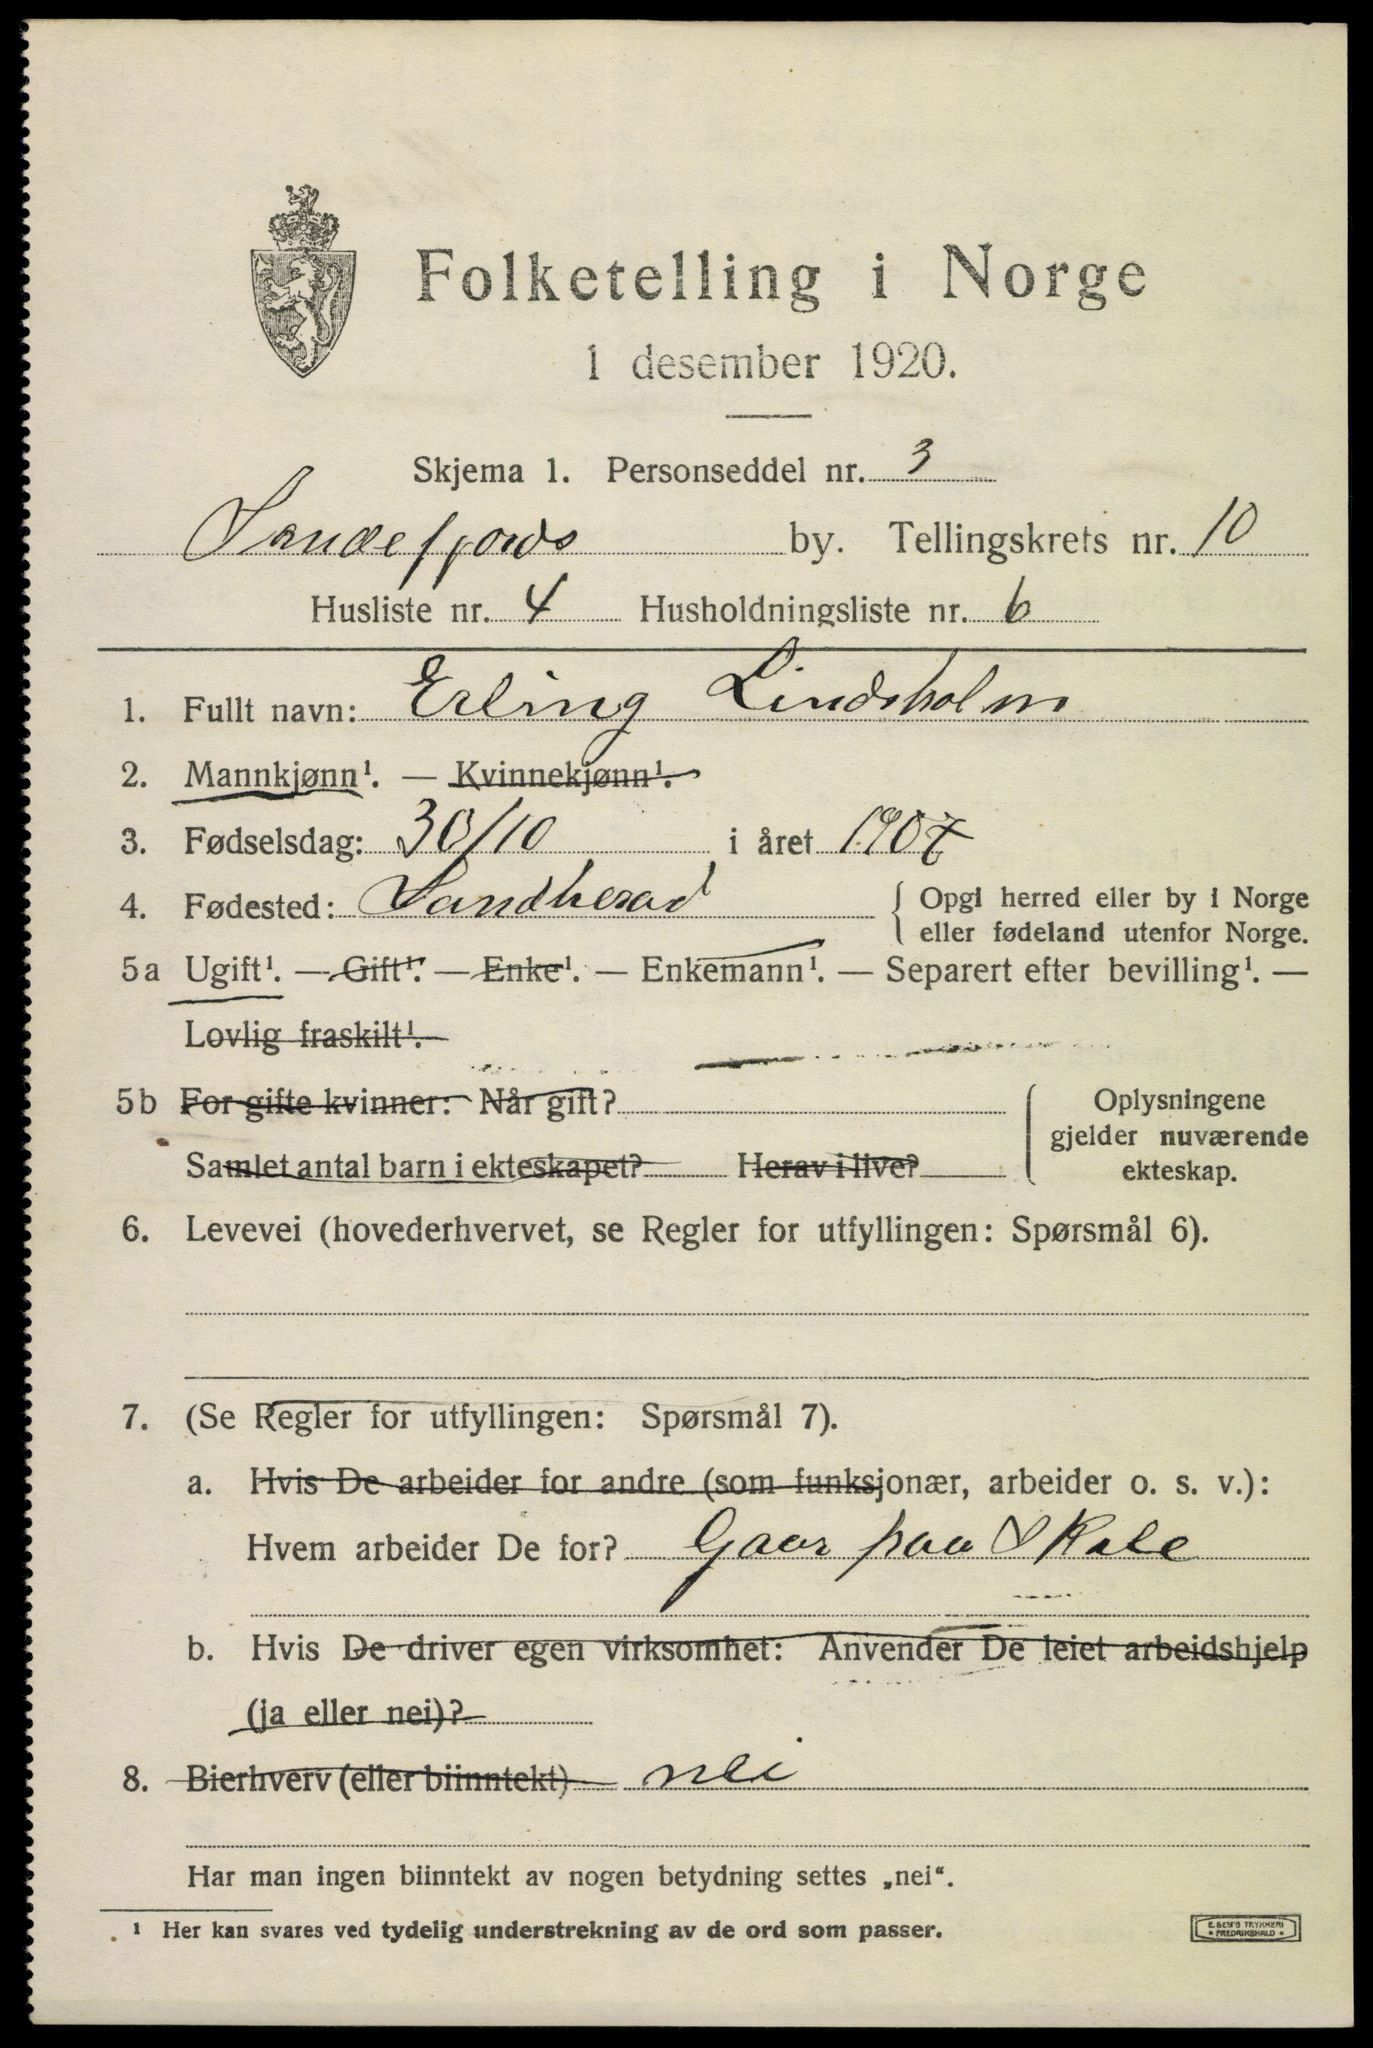 Folketelling i Norge
1 desember 1920.
Skjema 1. Personseddel nr. 3
Sandefjords by. Tellingskrets nr. 10
Husliste nr. 4 Husholdningsliste nr. 6
1. Fullt navn: Erling Lindsholm
2. Mannkjønn¹. — Kvinnekjønn¹.
3. Fødselsdag: 30/10 i året 1907
4. Fødested: Sandherad { Opgi herred eller by i Norge
eller fødeland utenfor Norge.
5a Ugift¹. — Gift¹. — Enke¹. — Enkemann¹. — Separert efter bevilling¹. —
Lovlig fraskilt¹.
5b For gifte kvinner: Når gift? { Oplysningene
gjelder nuværende
Samlet antal barn i ekteskapet? Herav i live? ekteskap.
6. Levevei (hovederhvervet, se Regler for utfyllingen: Spørsmål 6).
7. (Se Regler for utfyllingen: Spørsmål 7).
a. Hvis De arbeider for andre (som funksjonær, arbeider o. s. v.):
Hvem arbeider De for? Gaar paa Skole
b. Hvis De driver egen virksomhet: Anvender De leiet arbeidshjelp
(ja eller nei)?
8. Bierhverv (eller biinntekt) nei
Har man ingen biinntekt av nogen betydning settes „nei“.
¹ Her kan svares ved tydelig understrekning av de ord som passer.
E. SEM'S TRYKKERI
• FREDRIKSHALD •